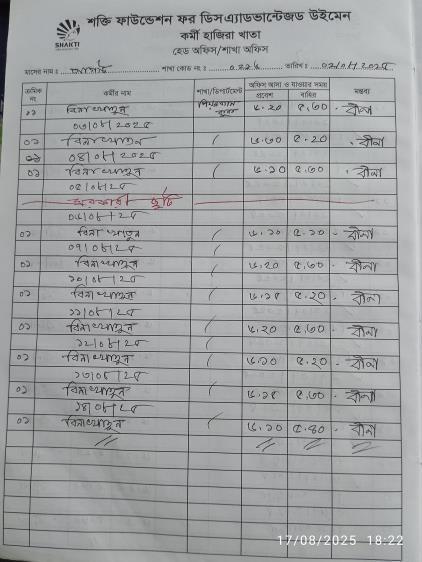 শক্তি ফাউন্ডেশন ফর ডিসএ্যাডভান্টেজড উইমেন
কর্মী হাজিরা খাতা
হেড অফিস/শাখা অফিস
SHAKTI
মাসের নাম : আগষ্ট শাখা কোড নং : তারিখ : ০২/০৮/২০২৫
ক্রমিক নং কর্মীর নাম শাখা/ডিপার্টমেন্ট অফিস আসা ও যাওয়ার সময় মন্তব্য
প্রবেশ বাহির
০১ বিনা খাতুন ৮.২০ ৫.৩০ বীনা
০৩/০৮/২০২৫
০১ বিনা খাতুন ৮.৩০ ৫.২০ বীনা
০৪/০৮/২০২৫
০১ বিনা খাতুন ৮.১০ ৫.৩০ বীনা
০৫/০৮/২৫
সরকারী ছুটি
০৬/০৮/২৫
০১ বিনা খাতুন ৮.১০ ৫.১০ বীনা
০৭/০৮/২৫
০১ বিনা খাতুন ৮.২০ ৫.৩০ বীনা
১০/০৮/২৫
০১ বিনা খাতুন ৮.১৫ ৫.২০ বীনা
১১/০৮/২৫
০১ বিনা খাতুন ৮.২০ ৫.৩০ বীনা
১২/০৮/২৫
০১ বিনা খাতুন ৮.১০ ৫.২০ বীনা
১৩/০৮/২৫
০১ বিনা খাতুন ৮.১৫ ৫.৩০ বীনা
১৪/০৮/২৫
০১ বিনা খাতুন ৮.১০ ৫.৪০ বীনা
17/08/2025 18:22